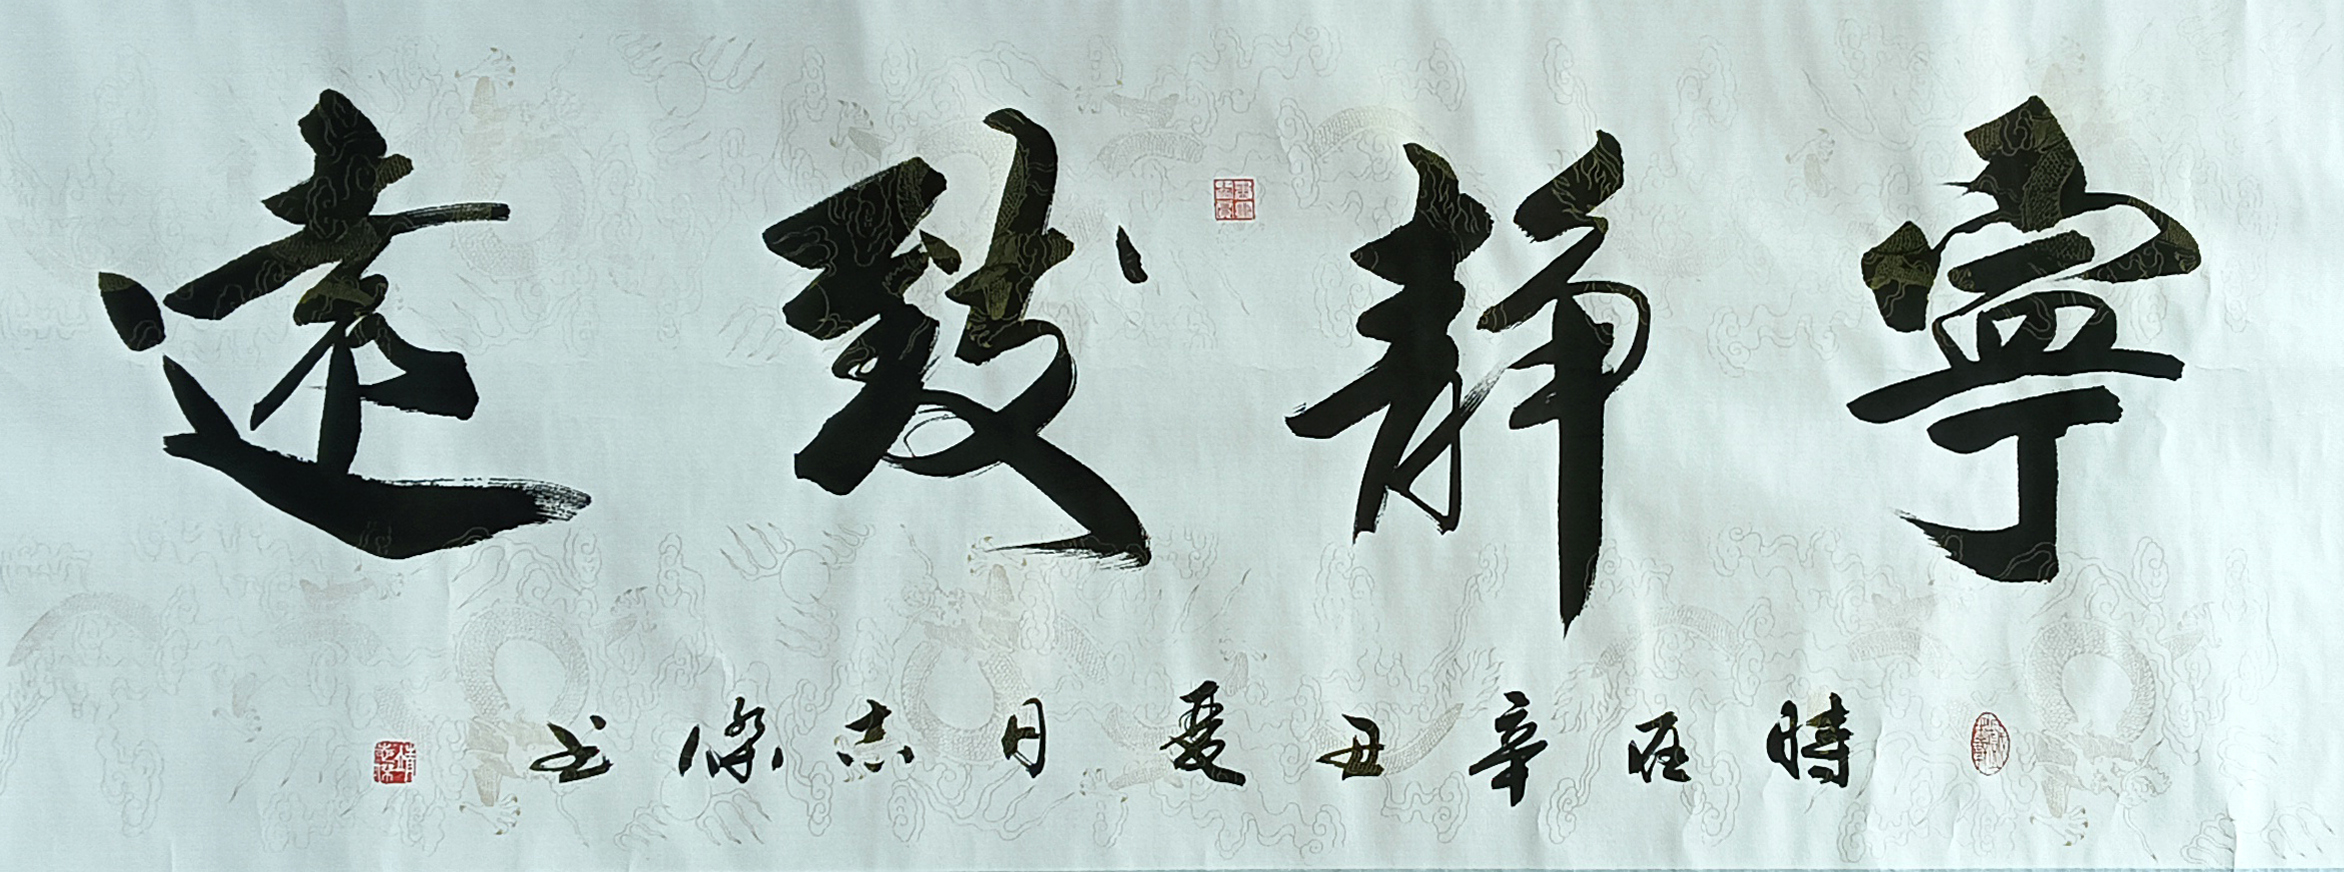 寧靜致遠
時在辛丑夏月志傑书